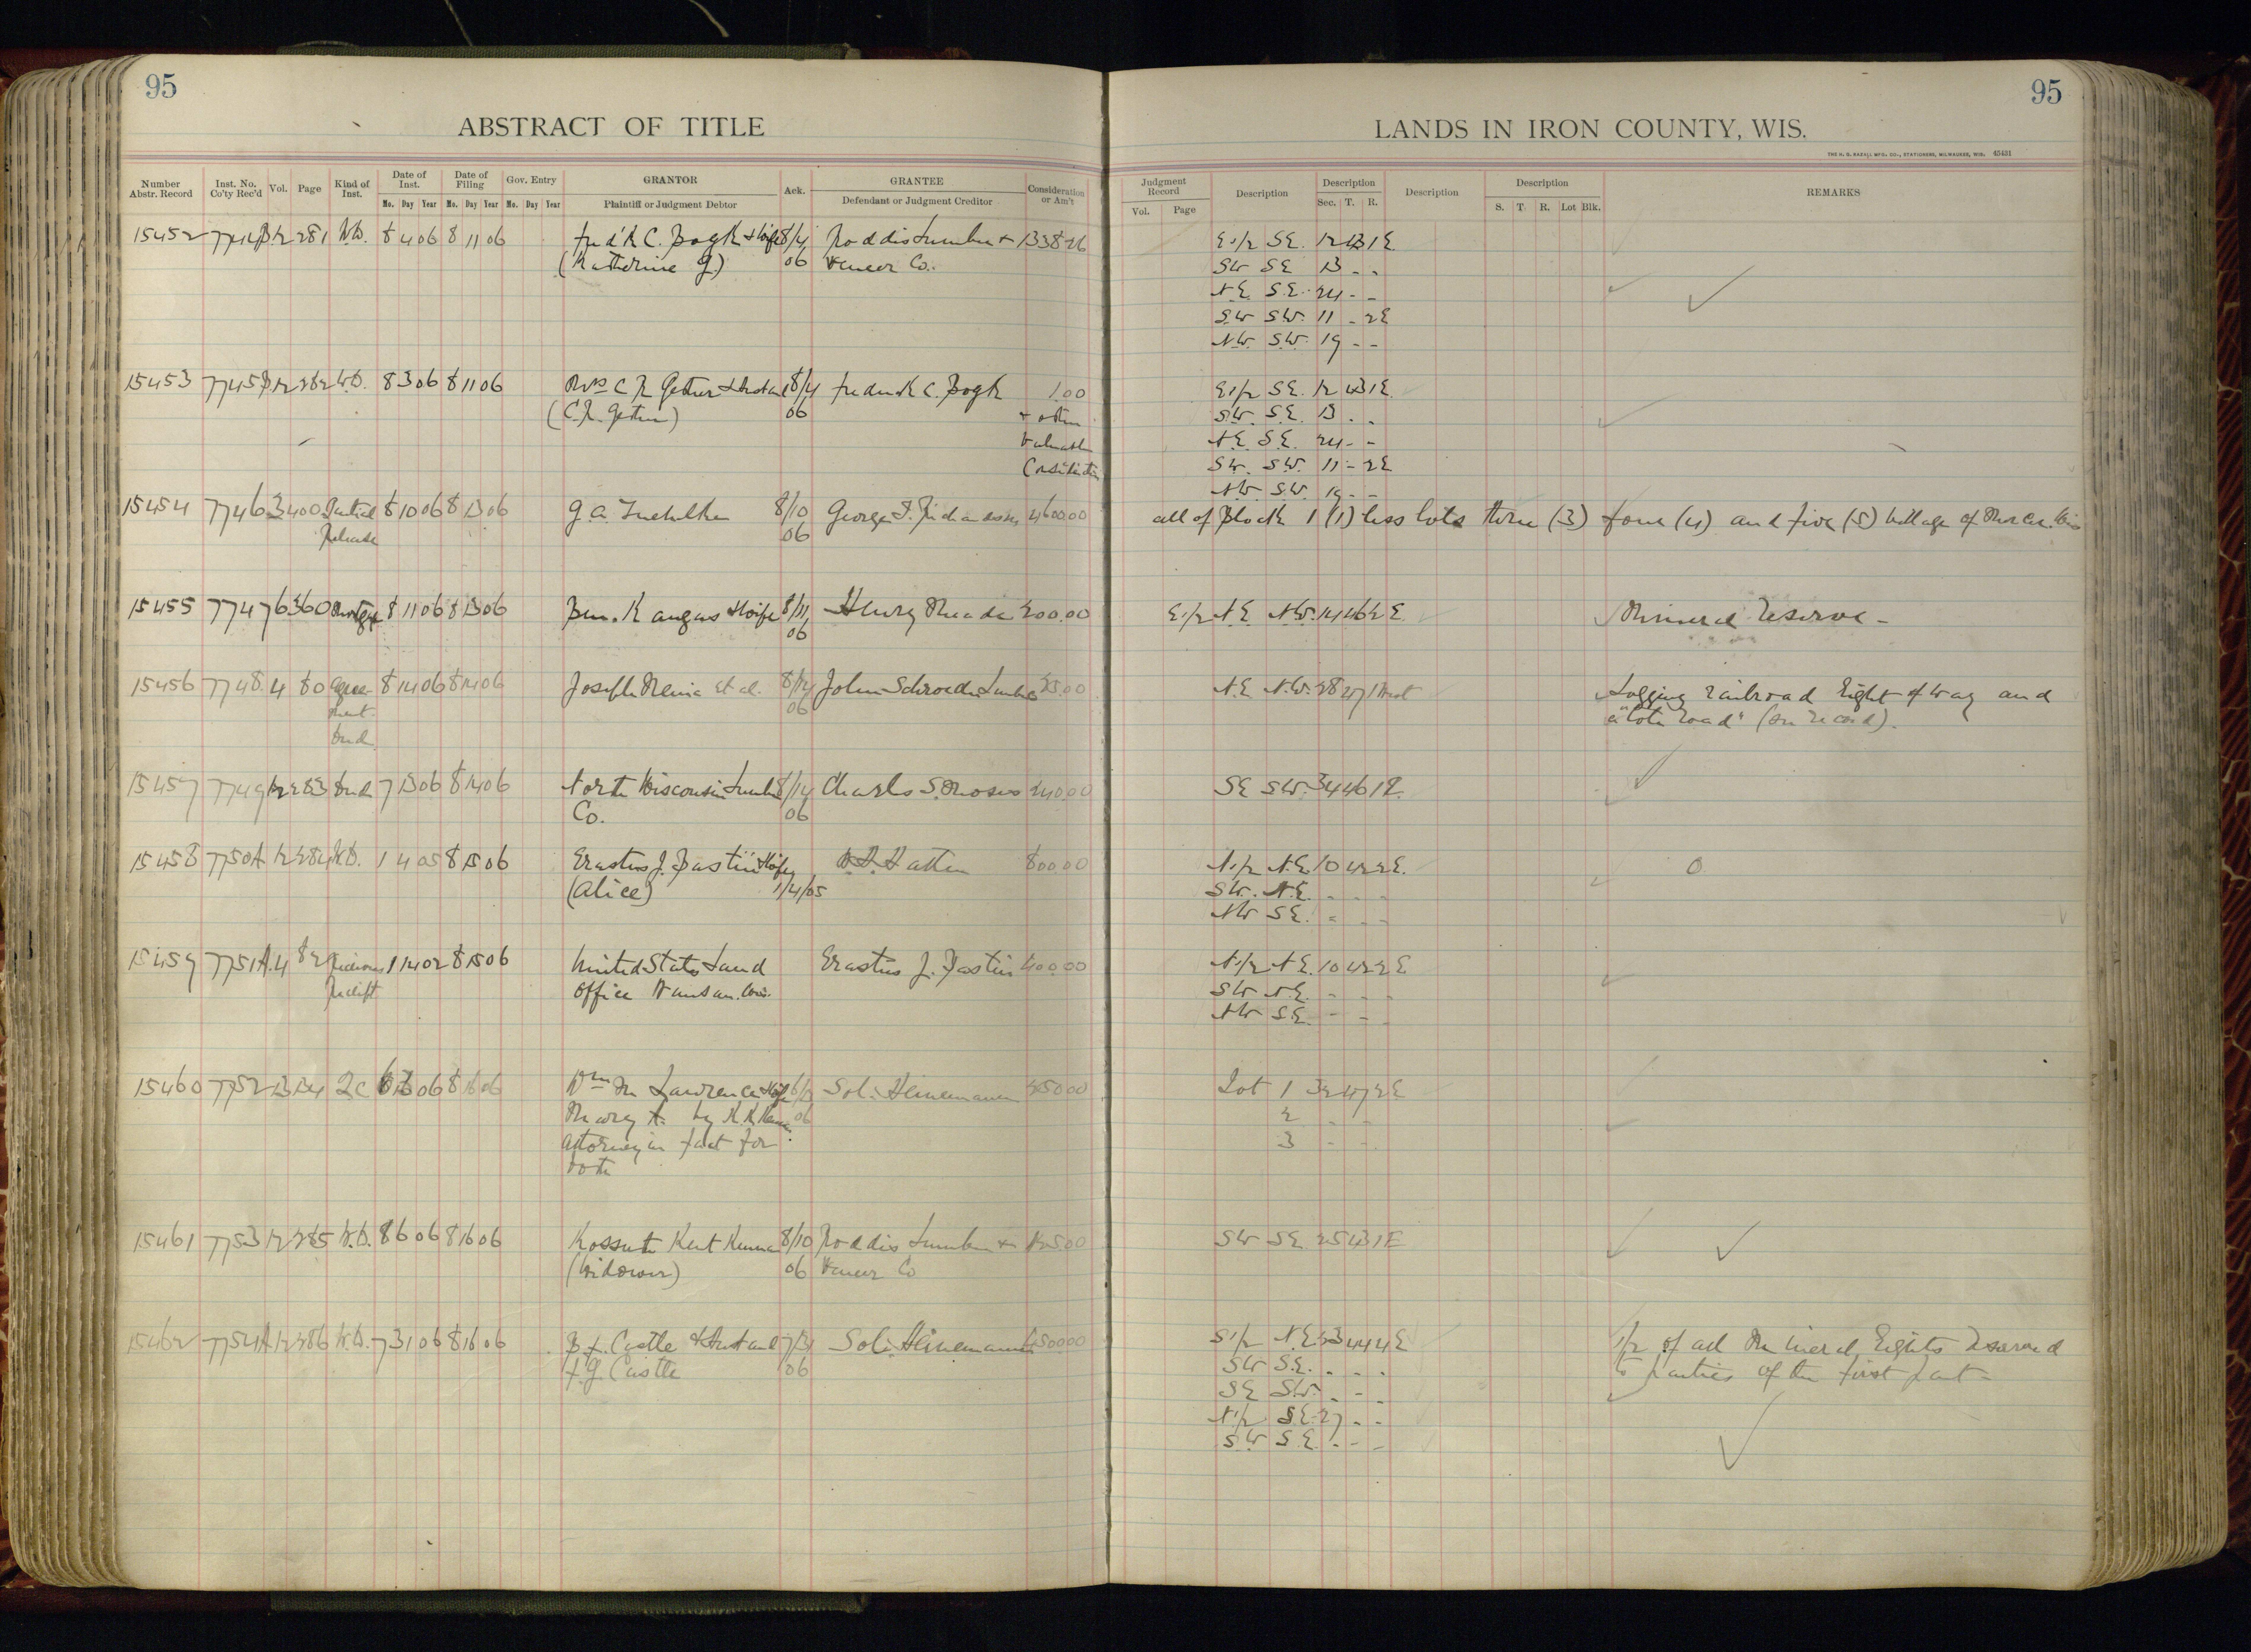 95
ABSTRACT OF TITLE
Number Abstr. Record Inst. No. Co'ty Rec'd Vol. Page Kind of Inst. Date of Inst. Date of Filing Gov. Entry GRANTOR Ack. GRANTEE Consideration or Am't
Mo. Day Year Mo. Day Year Mo. Day Year Plaintiff or Judgment Debtor Defendant or Judgment Creditor
15452 12 281 W.D. 8 4 06 8 11 06 Fred'k C. Bogk & Wife 8/4 Roddis Lumber & 1338 26
(Katherine G.) 06 Veneer Co.
15453 7745 12 282 W.D. 8 3 06 8 11 06 Mrs C R Gether & Husband 8/4 Frederick C. Bogk 1.00
(C.R. Gether) 06 & other
Valuable
Consideration
15454 7746 3 400 Partial 8 10 06 8 13 06 G.A. 8/10 George F. 4600.00
Release 06
15455 7747 6 360 Mortgage 8 11 06 8 13 06 Ben. K Angus & Wife 8/11 Henry Meade 200.00
06
15456 7748 4 80 Agree- 8 14 06 8 14 06 Joseph et al. 8/14 John Schroeder Lumber 25.00
ment 06
Deed
15457 7749 12 283 Deed 7 13 06 8 14 06 North Wisconsin Lumber 8/14 Charles S. Moses 240.00
Co. 06
15458 7750A 12 284 W.D. 1 4 05 8 15 06 Erastus J. Bastin & Wife Hatten 800.00
(Alice) 1/4/05
15459 7751A 4 82 Receivers 1 14 02 8 15 06 United States Land Erastus J. Bastin 400.00
Receipt Office Wausau. Wis.
15460 7752 13 Q C 6 06 8 16 06 Wm M Lawrence & Wife Sol. Heinemann 450.00
Mary A. by K K 06
Attorney in fact for
both
15461 7753 12 285 W.D. 8 6 06 8 16 06 Kossuth Kent Kennan 8/10 Roddis Lumber & 125.00
(Widower) 06 Veneer Co
15462 7754A 12 286 W.D. 7 31 06 8 16 06 B.F. Castle & Husband 7/31 Sol. Heinemann
F.G. Castle 06
95
LANDS IN IRON COUNTY, WIS.
THE H. G. RAZALL MFG. CO., STATIONERS, MILWAUKEE, WIS. 45431
Judgment Record Description Description Description Description REMARKS
Vol. Page Sec. T. R. S. T. R. Lot Blk.
E1/2 SE. 12 43 1E
SW SE 13 - -
NE SE. 24 - -
SW SW. 11 - 2E
NW SW. 19 - -
E1/2 SE. 12 43 1E
SW. SE. 13 - -
NE SE. 24 - -
SW. SW. 11 - 2E
NW SW. 19 - -
all of Block 1 (1) less lots three (3) four (4) and five (5) Village of Mercer. Wis
E1/2 NE NW. 14 46 2E Mineral reserve -
NE NW. 28 47 1 West Logging railroad right of way and
a "tote road" (on record).
SE SW. 34 46 1E.
N1/2 NE 10 42 2E. 0
SW. NE. - - -
NW SE. - - -
N1/2 NE. 10 42 2E
SW NE. - - -
NW SE. - - -
Lot 1 32 47 2E
2 - -
3 - -
SW SE 25 43 1E
S1/2 NE 23 44 4E 1/2 of all mineral rights reserved
SW SE. - - - to parties of the first part -
SE SW. - - -
N1/2 SE. 27 - -
SW SE. - - -